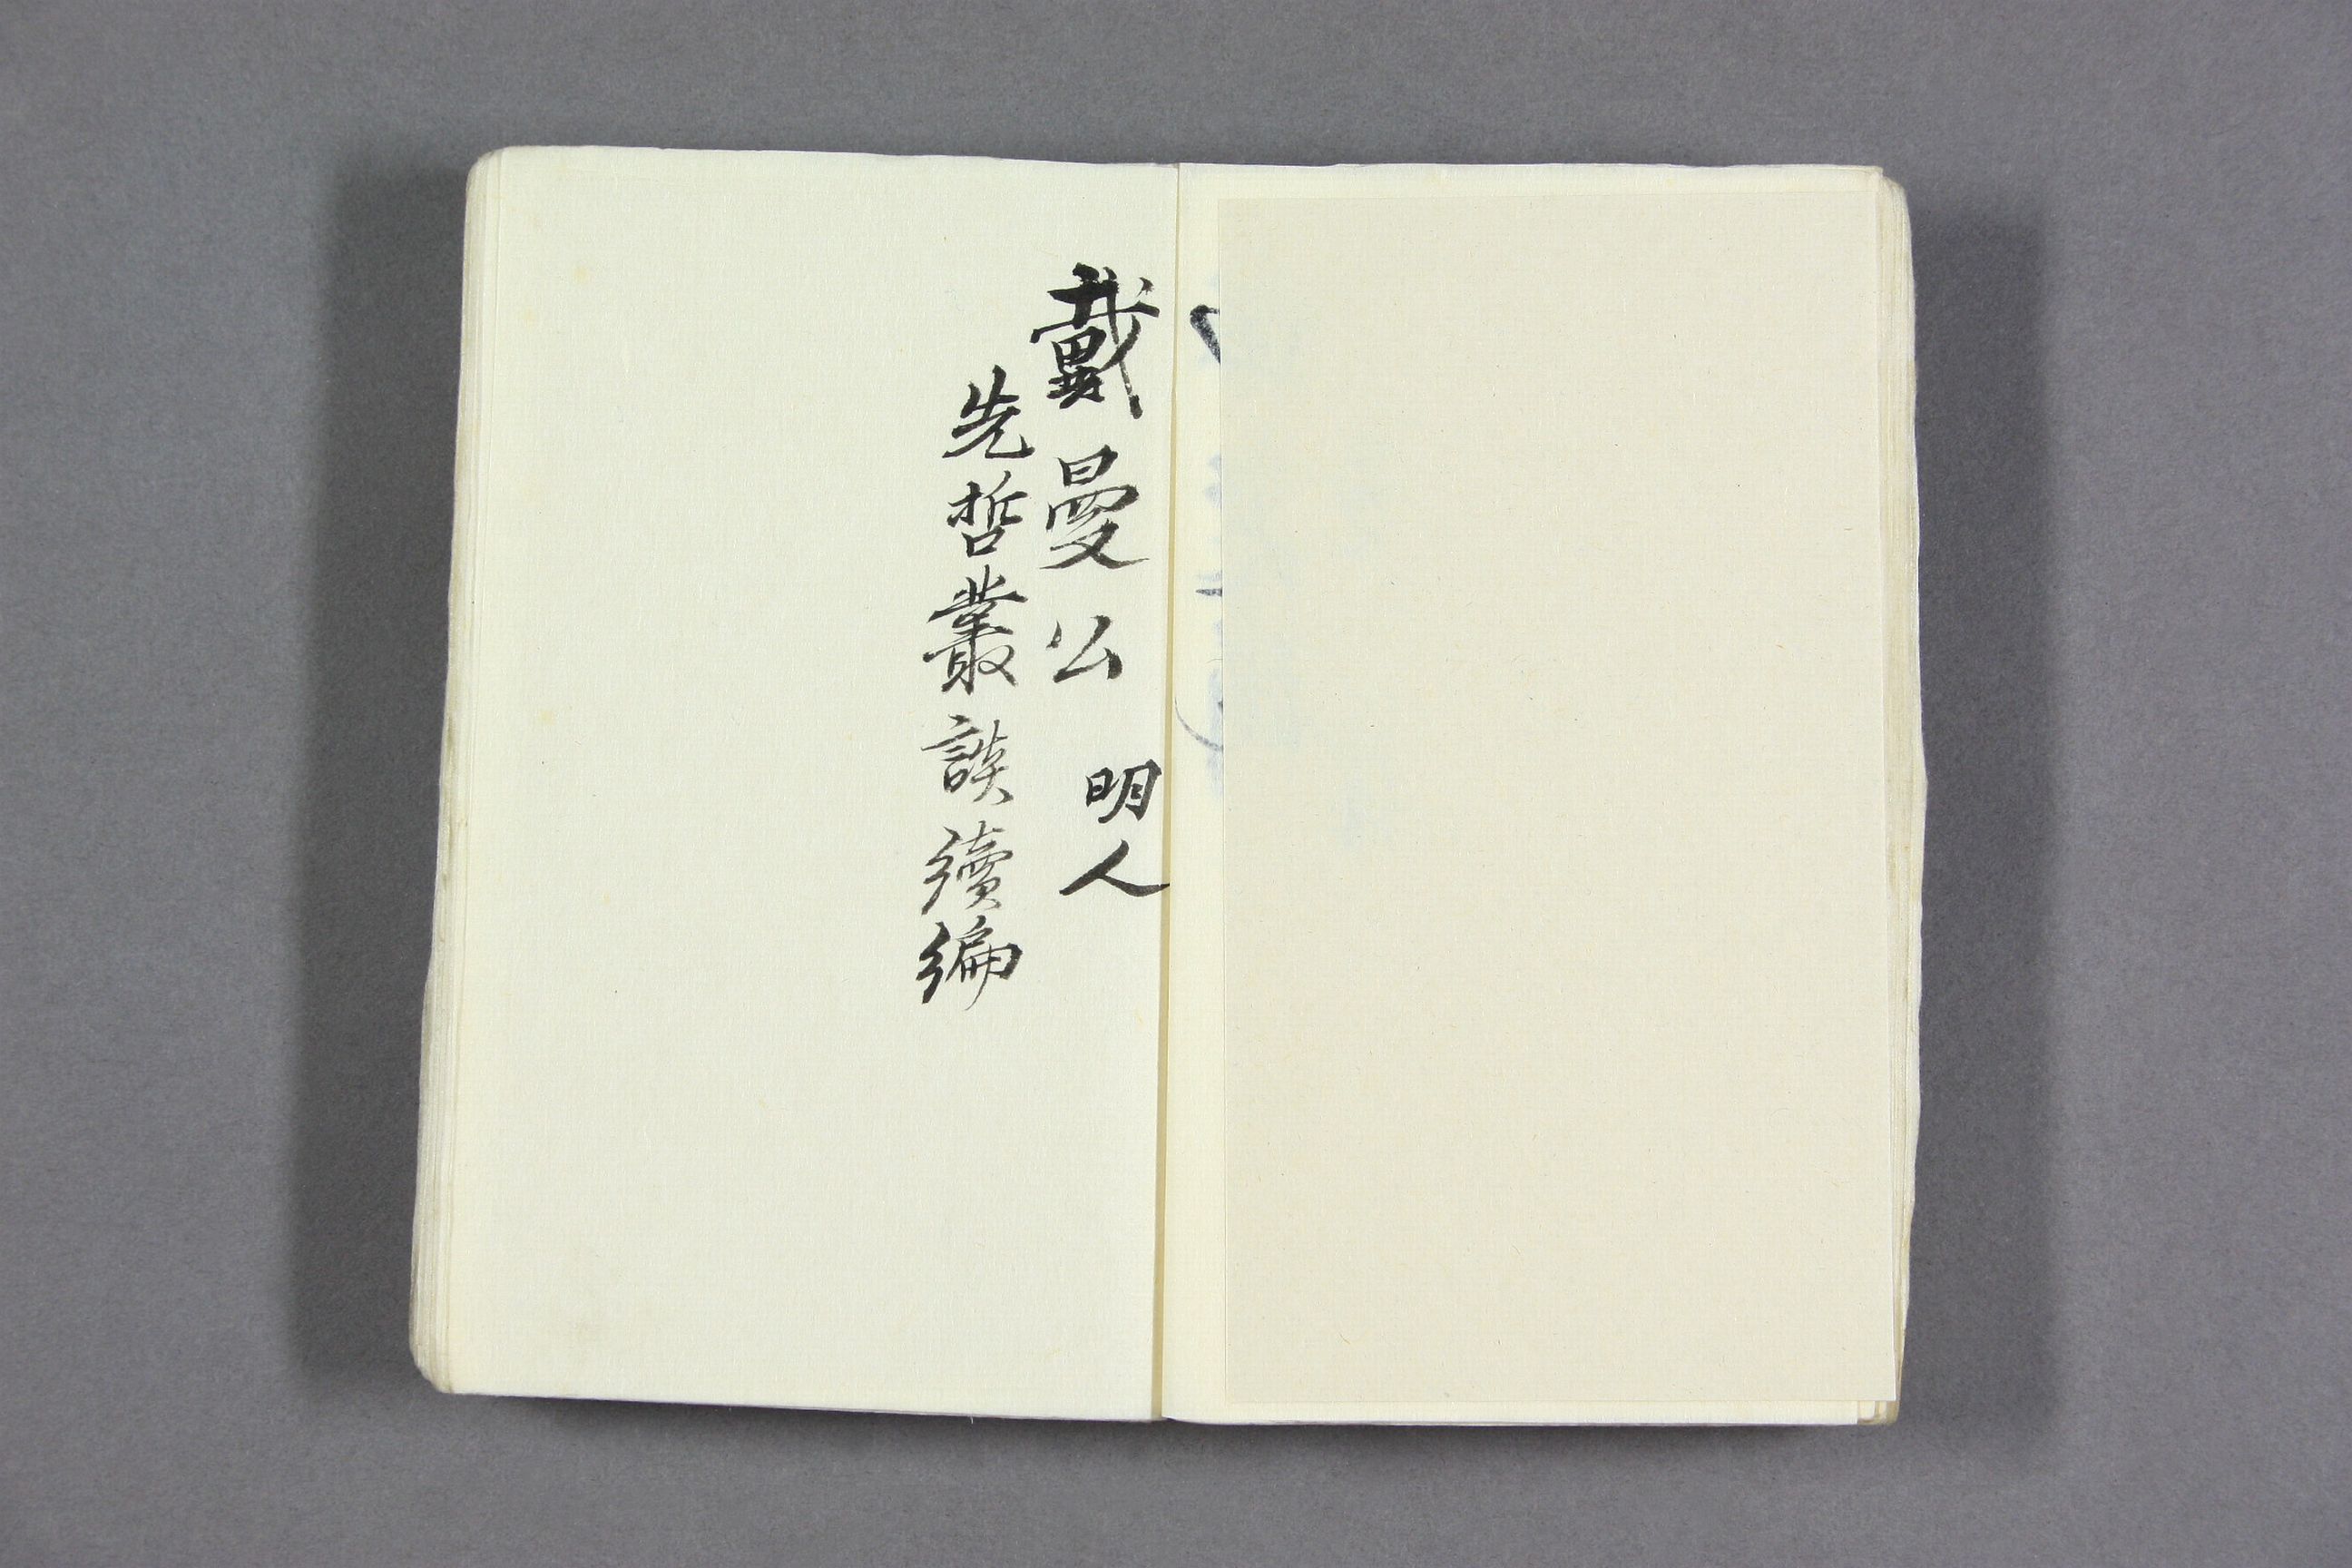 戴曼公 明人
先哲叢談續編